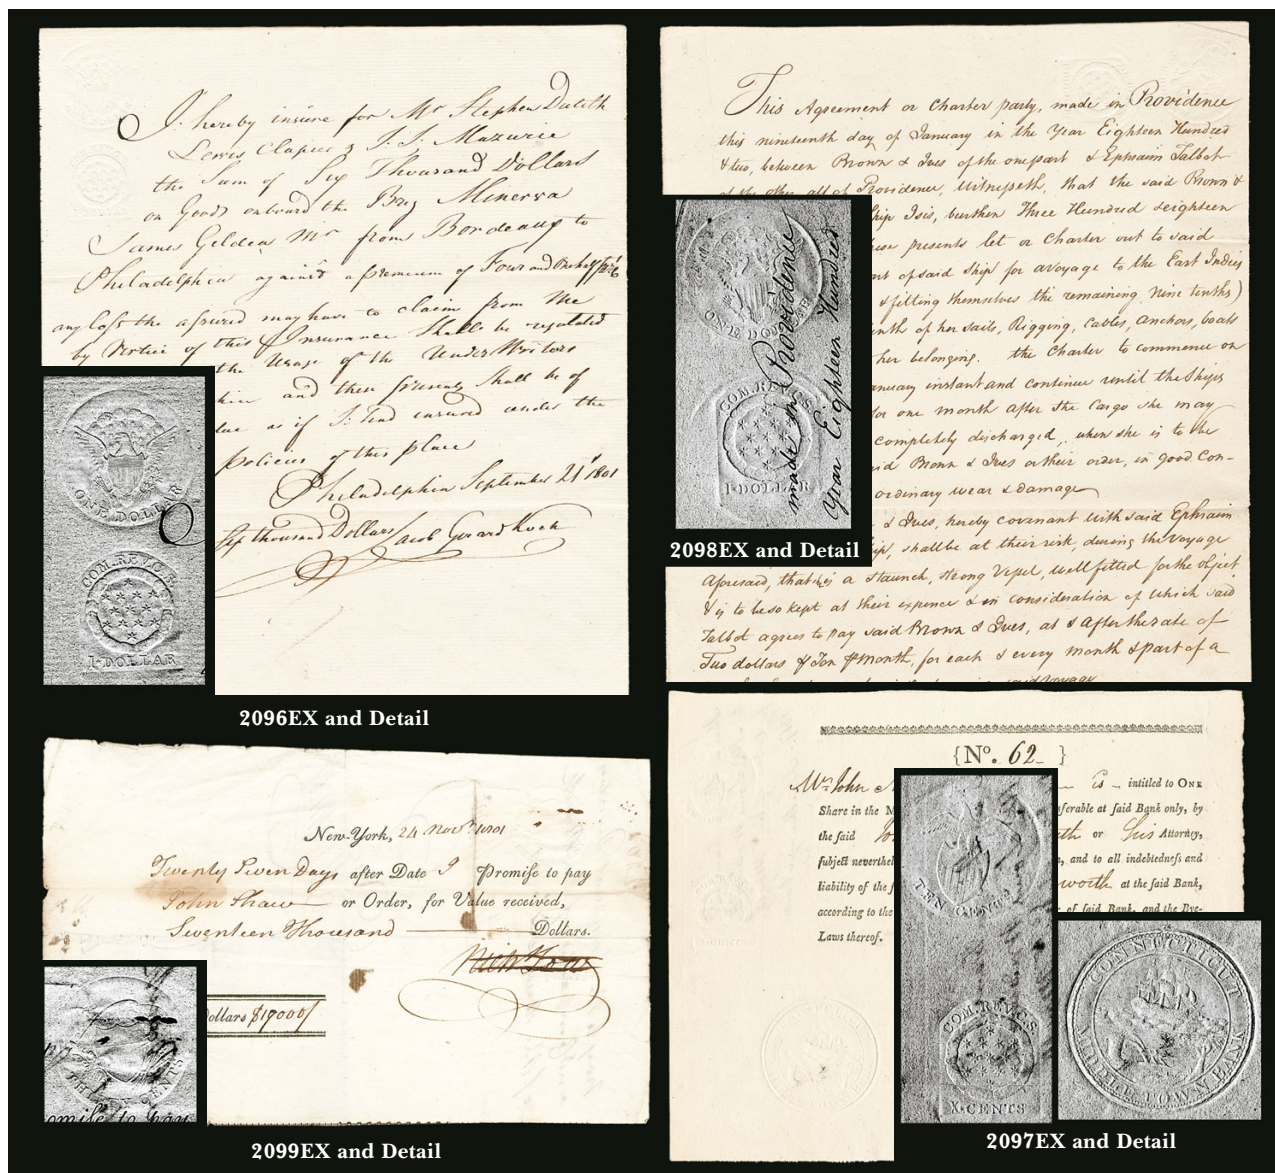 I hereby insure for Mr Stephen Dutilh
Lewis Clapier & J. J. Mazurie
the Sum of Six Thousand Dollars
on Goods onboard the Brig Minerva
James Gelden Mr from Bordeaux to
Philadelphia against a premium of Four and One half
any Loss the assured may have to claim from the
by Vertue of this Insurance Shall be regulated
the Usage of the UnderWriters
and these presents Shall be of
as if I had insured under the
policies of this place
Philadelphia September 21st 1801
Six thousand Dollars Jacob Gerard Koch
ONE DOLLAR
COM. REV. C.S.
I·DOLLAR
2096EX and Detail
This Agreement or Charter party, made in Providence
this nineteenth day of January in the Year Eighteen Hundred
& two, between Brown & Ives of the one part & Ephraim Talbot
of the other all of Providence, Witnesseth, that the said Brown &
Ship Isis, burthen Three Hundred & eighteen
these presents let or Charter out to said
part of said Ship for a voyage to the East Indies
& fitting themselves the remaining nine tenths)
tenth of her sails, Rigging, Cables, anchors, boats
her belonging. the Charter to commence on
January instant and continue until the Ships
for one month after the Cargo she may
completely discharged, when she is to be
said Brown & Ives or their order, in good Con-
ordinary wear & damage
& Ives, hereby covenant with said Ephraim
Ship, shall be at their risk, during the voyage
Aforesaid, that is a staunch, strong Vessel, well fitted for the object
& is to be so kept at their expence & in consideration of which said
Talbot agrees to pay said Brown & Ives, at & after the rate of
Two dollars ⅌ Ton ⅌ Month, for each & every month & part of a
said voyage
ONE DOLLAR
COM. REV. C.S.
I·DOLLAR
made in Providence
Year Eighteen Hundred
2098EX and Detail
New-York, 24 Novr. 1801
Twenty Seven Days after Date I Promise to pay
John Shaw or Order, for Value received,
Seventeen Thousand Dollars.
Dollars $17000/
CENTS
omise to pay
2099EX and Detail
{No. 62 }
Mr. John is intitled to ONE
Share in the M sferable at said Bank only, by
the said or his Attorney,
subject neverthel , and to all indebtedness and
liability of the s worth at the said Bank,
according to the of said Bank, and the Bye-
Laws thereof.
TEN CENTS
COM. REV. C.S.
X·CENTS
CONNECTICUT
MIDDLETOWN BANK
2097EX and Detail